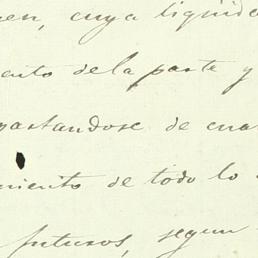 en, cuya liquid
ento de la parte y
pastandose de cua
miento de todo lo
futuros, segun